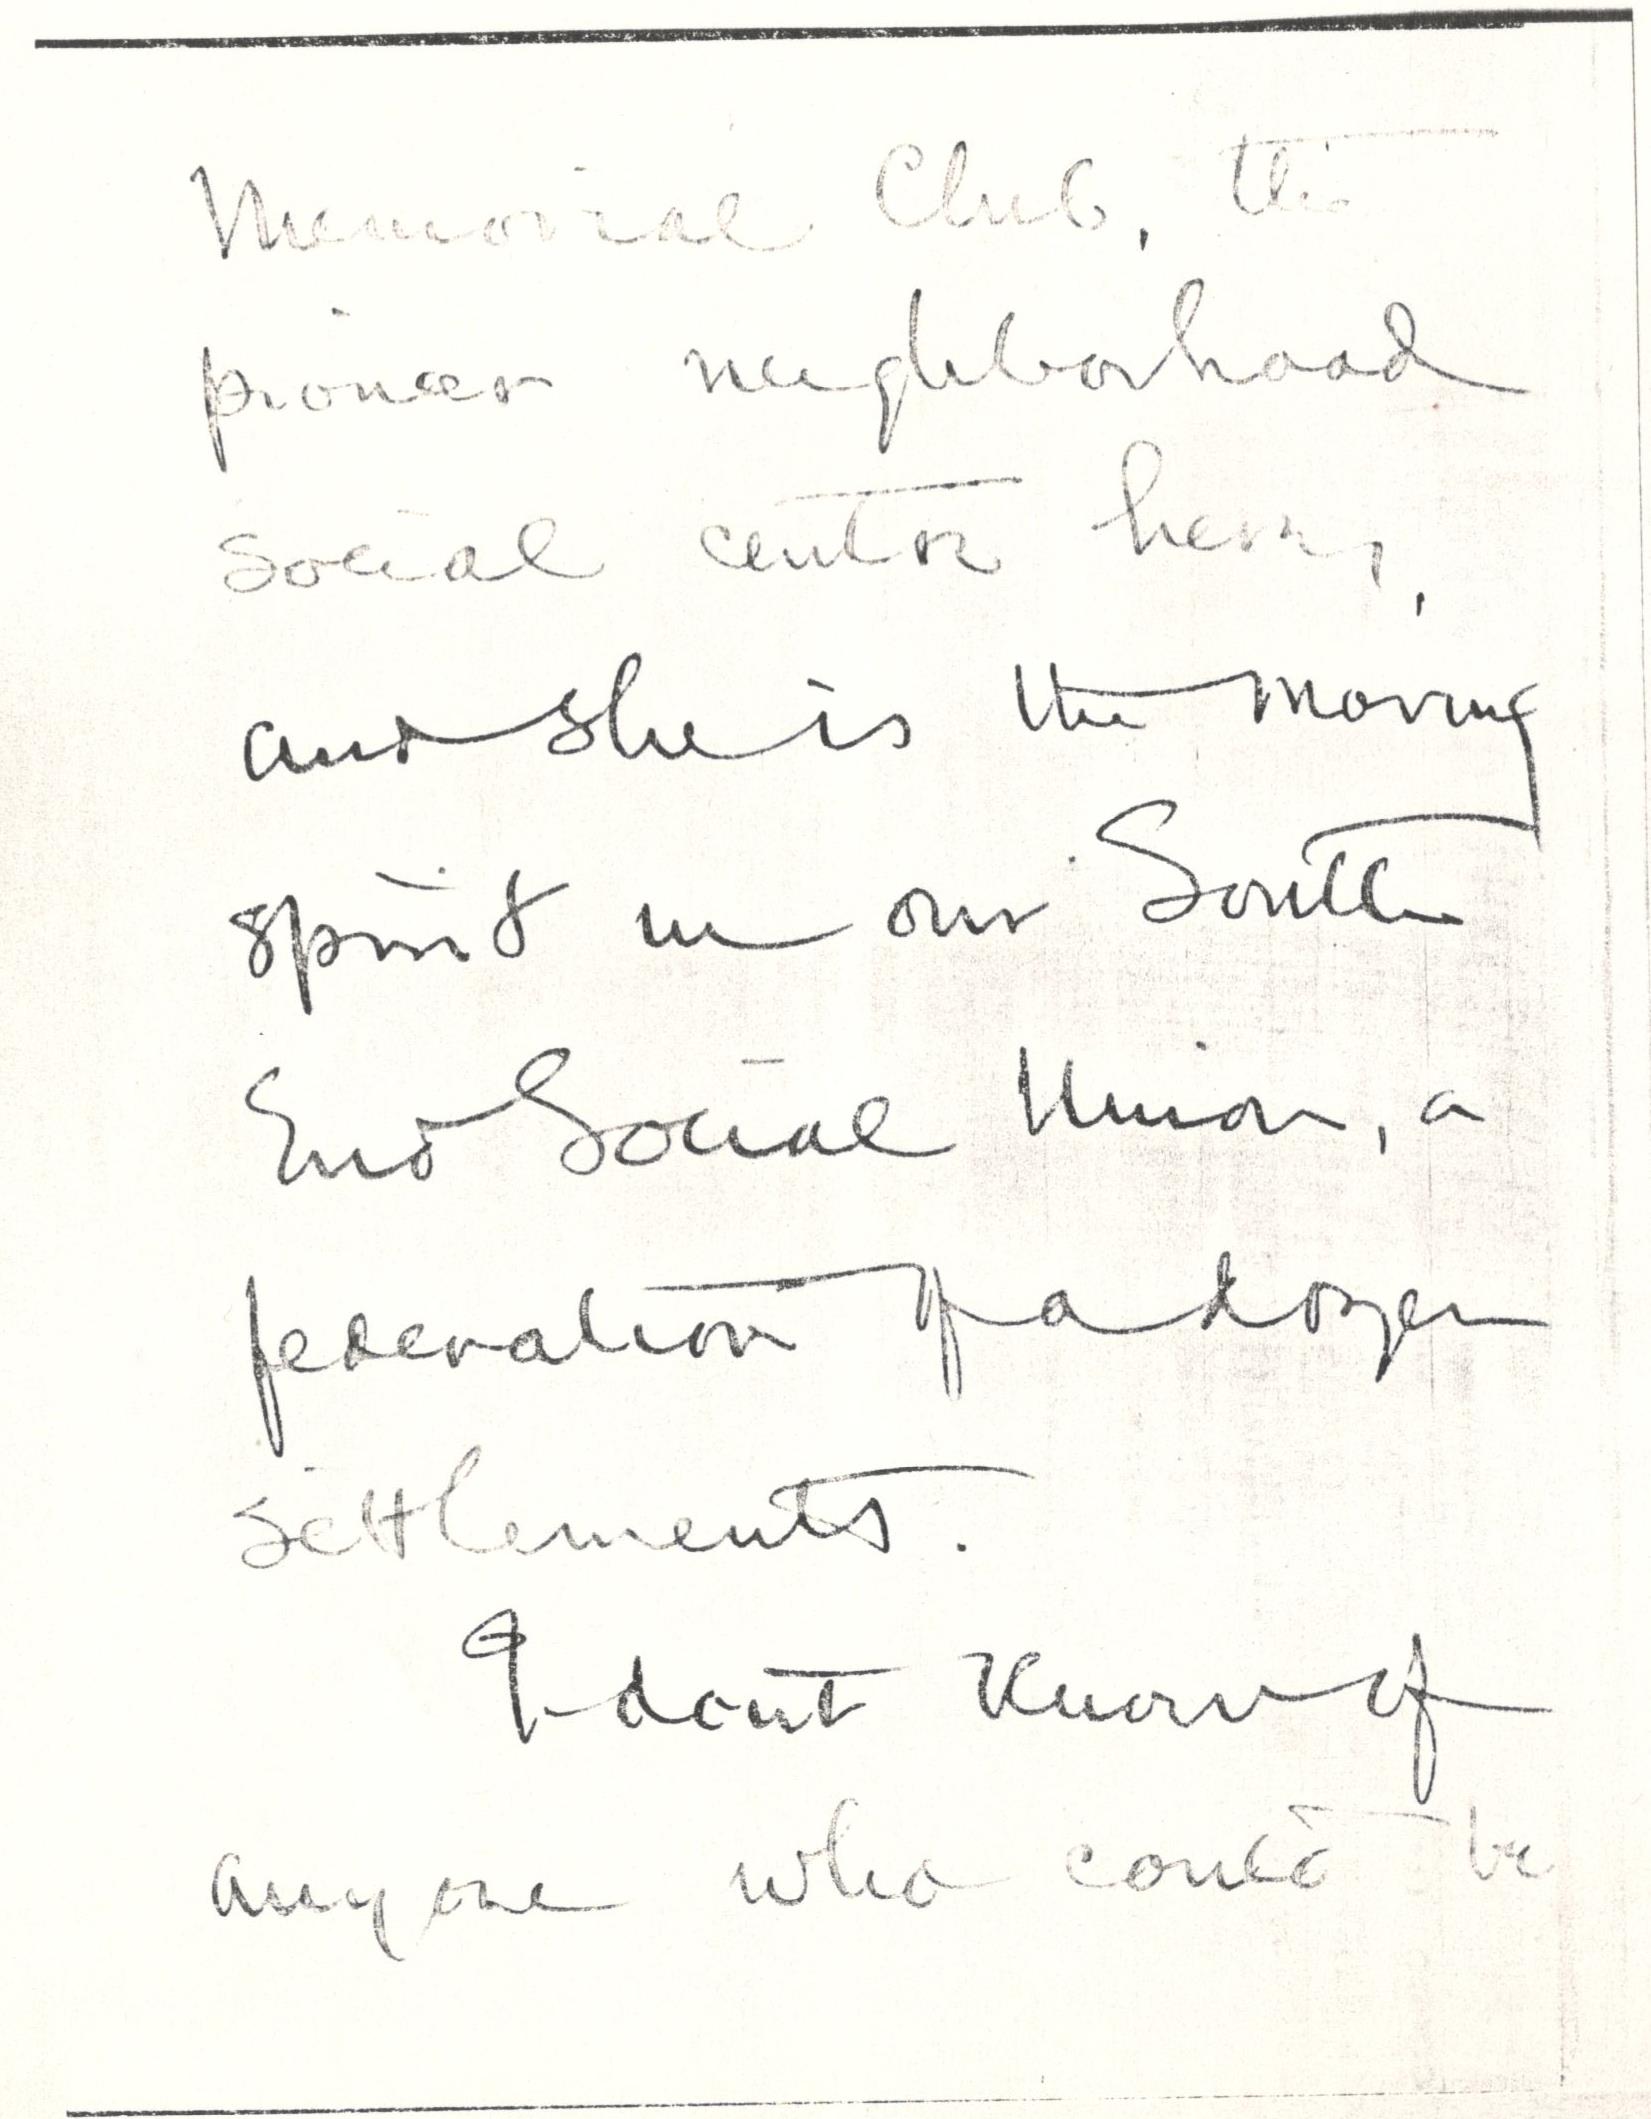 Memorial Club, the
pioneer neighborhood
social center here,
and she is the moving
spirit in our South
End Social Union, a
federation of a dozen
settlements.
I dont know of
anyone who could be